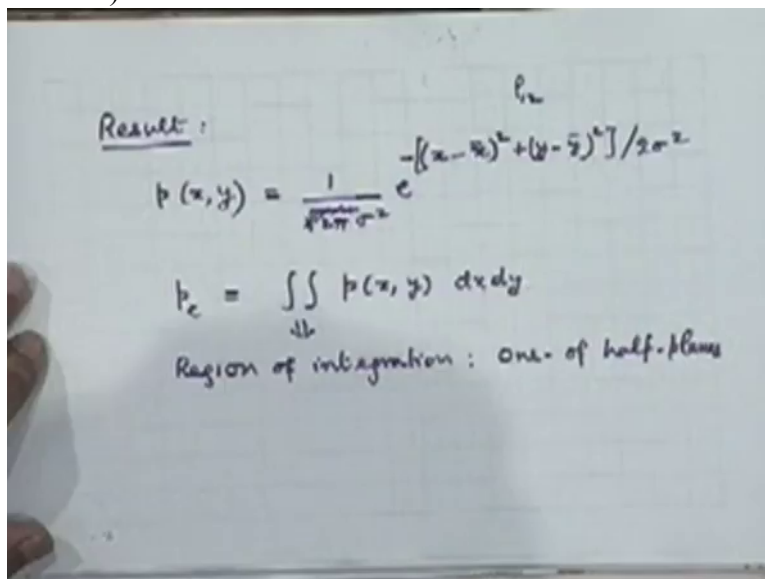 Result :
p(x,y) = 1/(2πσ²) e^{-[(x-x̄)²+(y-ȳ)²]/2σ²}
p_e = ∬ p(x,y) dx dy
⇓
Region of integration : One of half-planes